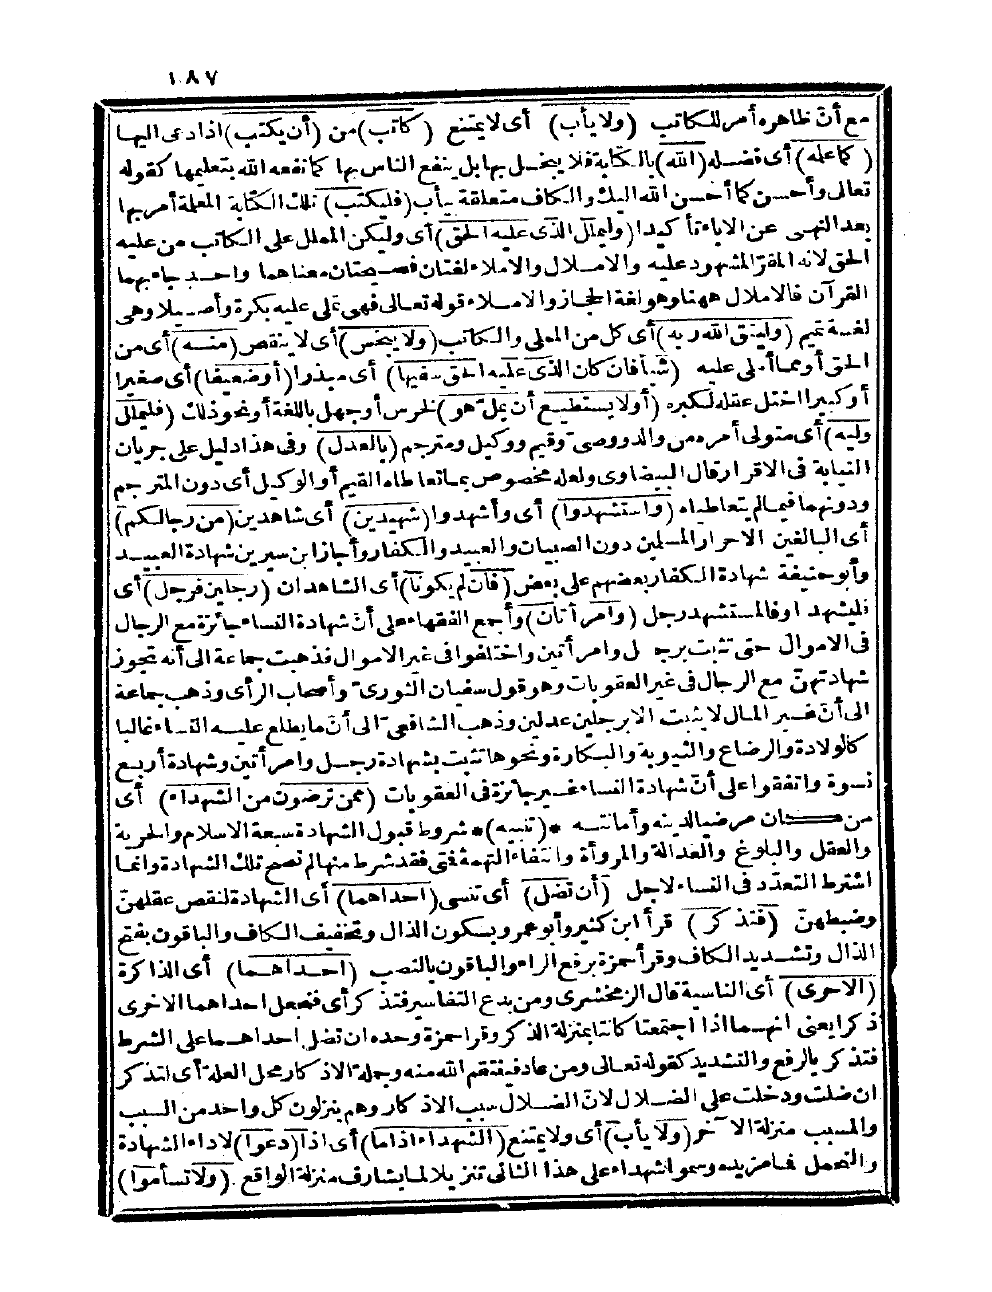 ١٨٧
مع أنّ ظاهره أمر للكاتب (ولا يأب) أى لا يمتنع (كاتب) من (أن يكتب) اذا دعى اليها
(كما علمه) أى فضله (الله) بالكتابة فلا يبخل بها بل ينفع الناس بها كما نفعه الله بتعليمها كقوله
تعالى وأحسن كما أحسن الله اليك والكاف متعلقة بيأب (فليكتب) تلك الكتابة المعلمة أمر بها
بعد النهى عن الاباء تأكيدا (وليملل الذى عليه الحق) أى وليكن المملل على الكاتب من عليه
الحق لانه المقرّ المشهود عليه والاملال والاملاء لغتان فصيحتان معناهما واحد جاء بهما
القرآن فالاملال ههنا وهو لغة الحجاز والاملاء قوله تعالى فهى تملى عليه بكرة وأصيلا وهى
لغة تميم (وليتق الله ربه) أى كل من المملى والكاتب (ولا يبخس) أى لا ينقص (منه) أى من
الحق أو مما أملى عليه (شيأ فان كان الذى عليه الحق سفيها) أى مبذرا (أو ضعيفا) أى صغيرا
أو كبيرا اختل عقله لكبره (أو لا يستطيع أن يملّ هو) لخرس أو جهل باللغة أو نحو ذلك (فليملل
وليه) أى متولى أمره من والد ووصىّ وقيم ووكيل ومترجم (بالعدل) وفى هذا دليل على جريان
النيابة فى الاقرار قال البيضاوى ولعله مخصوص بما تعاطاه القيم أو الوكيل أى دون المترجم
ودونهما فيما لم يتعاطياه (واستشهدوا) أى وأشهدوا (شهيدين) أى شاهدين (من رجالكم)
أى البالغين الاحرار المسلمين دون الصبيان والعبيد والكفار وأجاز ابن سيرين شهادة العبيد
وأبو حنيفة شهادة الكفار بعضهم على بعض (فان لم يكونا) أى الشاهدان (رجلين فرجل) أى
فليشهد أو فالمستشهد رجل (وامرأتان) وأجمع الفقهاء على أنّ شهادة النساء جائزة مع الرجال
فى الاموال حتى تثبت برجل وامرأتين واختلفوا فى غير الاموال فذهبت جماعة الى أنه تجوز
شهادتهنّ مع الرجال فى غير العقوبات وهو قول سفيان الثورىّ وأصحاب الرأى وذهب جماعة
الى أنّ غير المال لا يثبت الا برجلين عدلين وذهب الشافعىّ الى أنّ ما يطلع عليه النساء غالبا
كالولادة والرضاع والثيوبة والبكارة ونحوها تثبت بشهادة رجل وامرأتين وشهادة أربع
نسوة واتفقوا على أنّ شهادة النساء غير جائزة فى العقوبات (ممن ترضون من الشهداء) أى
من كان مرضيا لدينه وأمانته *(تنبيه)* شروط قبول الشهادة سبعة الاسلام والحرية
والعقل والبلوغ والعدالة والمروأة وانتفاء التهمة فمتى فقد شرط منها لم تصح تلك الشهادة وانما
اشترط التعدّد فى النساء لاجل (أن تضل) أى تنسى (احداهما) أى الشهادة لنقص عقلهنّ
وضبطهنّ (فتذكر) قرأ ابن كثير وأبو عمرو بسكون الذال وتخفيف الكاف والباقون بفتح
الذال وتشديد الكاف وقرأ حمزة برفع الراء والباقون بالنصب (احداهما) أى الذاكرة
(الاخرى) أى الناسية قال الزمخشرى ومن بدع التفاسير فتذكر أى فتجعل احداهما الاخرى
ذكرا يعنى انهما اذا اجتمعتا كانتا بمنزلة الذكر وقرأ حمزة وحده ان تضل احداهما على الشرط
فتذكر بالرفع والتشديد كقوله تعالى ومن عاد فينتقم الله منه وجملة الاذكار محل العلة أى لتذكر
ان ضلت ودخلت على الضلال لانّ الضلال سبب الاذكار وهم ينزلون كل واحد من السبب
والمسبب منزلة الآخر (ولا يأب) أى ولا يمتنع (الشهداء اذاما) أى اذا (دعوا) لاداء الشهادة
والتحمل فما مزيدة وسموا شهداء على هذا الثانى تنزيلا لما يشارف منزلة الواقع (ولا تسأموا)